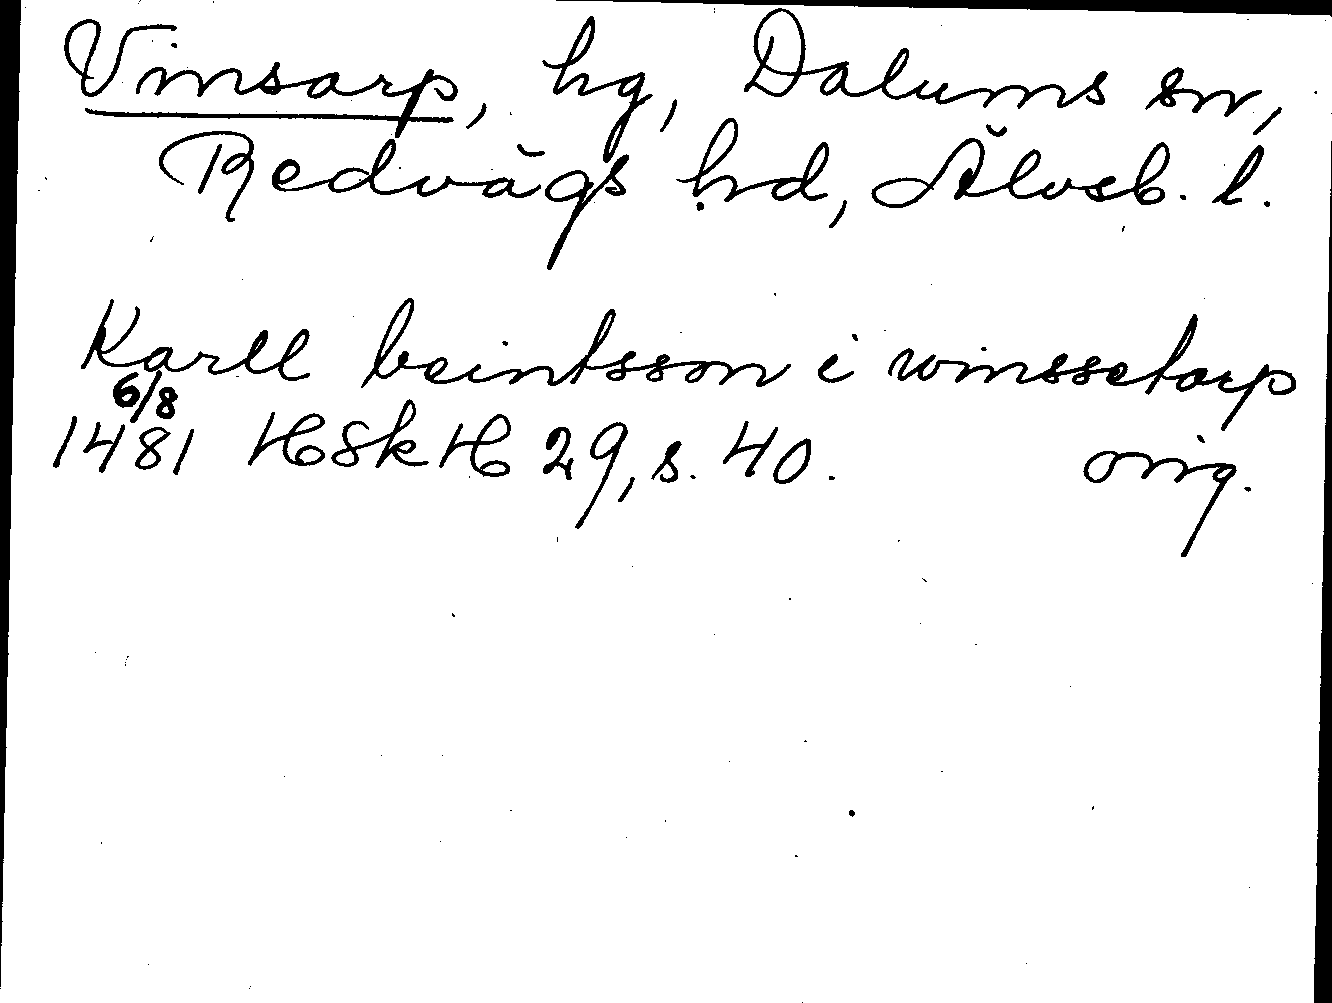 Vinsarp, hg, Dalums sn,
Redvägs hd, Älvsb. l.
Karll beintsson i winssetorp
6/8
1481 HSkH 29, s. 40. orig.